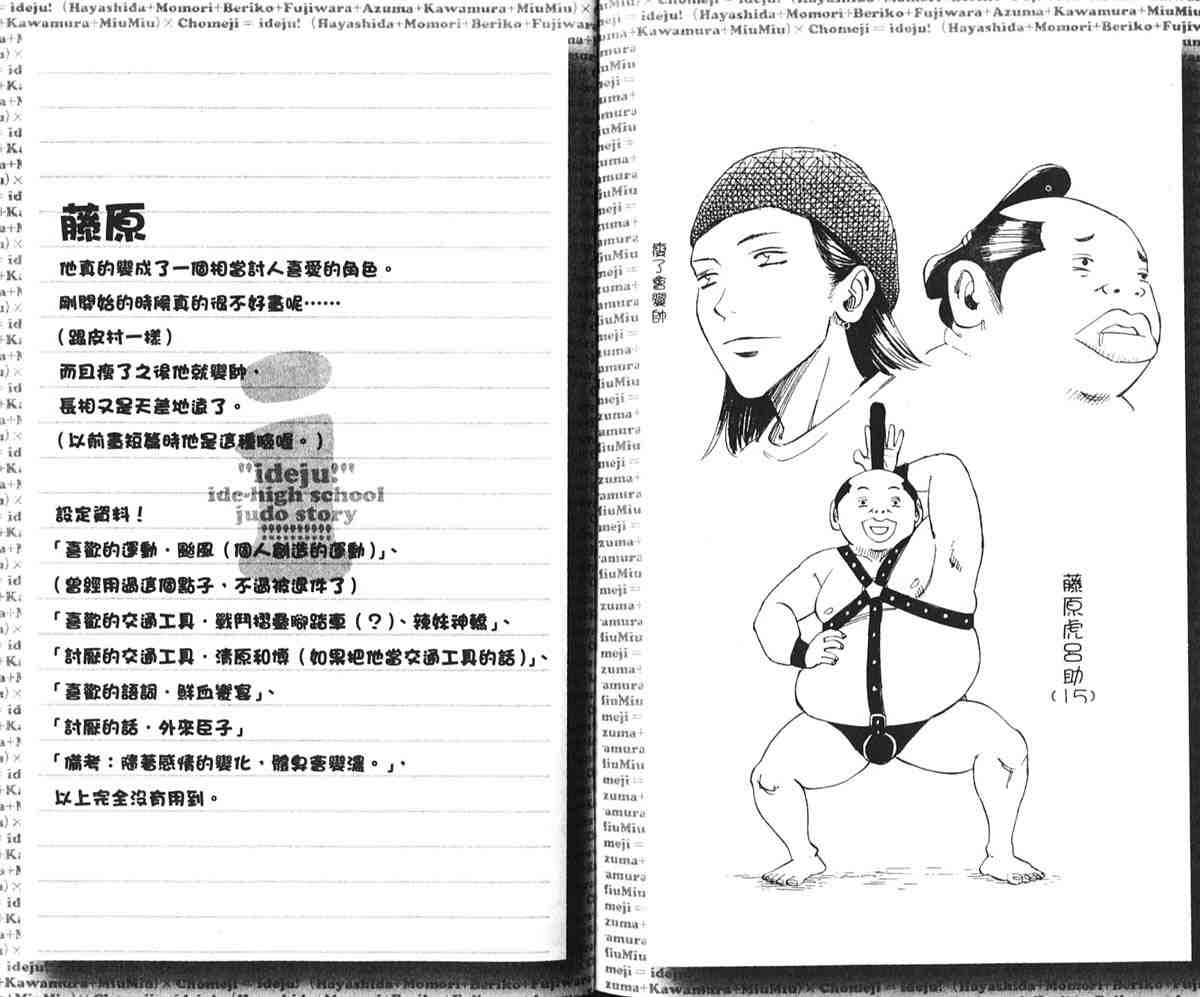 藤原
他真的變成了一個相當討人喜愛的角色。
剛開始的時候真的很不好畫呢……
(跟皮村一樣)
而且瘦了之後他就變帥、
長相又是天差地遠了。
(以前畫短篇時他是這種臉喔。)
"ideju!"
ide-high school
judo story
設定資料!
「喜歡的運動・颱風(個人創造的運動)」、
(曾經用過這個點子、不過被退件了)
「喜歡的交通工具・戰鬥摺疊腳踏車(?)、辣妹神轎」、
「討厭的交通工具・清原和博(如果把他當交通工具的話)」、
「喜歡的語詞・鮮血饗宴」、
「討厭的話・外來臣子」
「備考:隨著感情的變化、體臭會變濃。」、
以上完全沒有用到。
瘦了會變帥
藤原虎呂助
(15)
= ideju! (Hayashida+Momori+Beriko+Fujiwara+Azuma+Kawamura+MiuMiu)×
+Kawamura+MiuMiu)× Chomeji = ideju! (Hayashida+Momori+Beriko+Fujiwar
= ideju! (Hayashida+Momori+Beriko+Fujiwara+Azuma+Kawamura+MiuMiu
+Kawamura+MiuMiu)× Chomeji = ideju! (Hayashida+Momori+Beriko+Fujiw